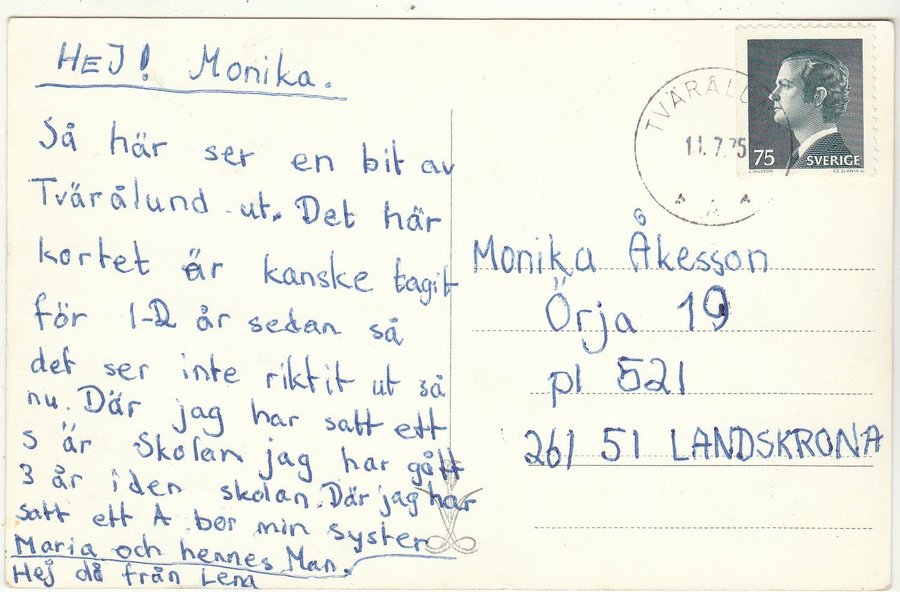 HEJ! Monika.
Så här ser en bit av
Tvärålund ut. Det här
kortet är kanske tagit
för 1-2 år sedan så
det ser inte riktit ut så
nu. Där jag har satt ett
S är Skolan jag har gått
3 år i den skolan. Där jag har
satt ett A bor min syster
Maria och hennes Man.
Hej då från Lena
TVÄRÅLU
11.7.75
75 SVERIGE
Monika Åkesson
Örja 19
pl 521
261 51 LANDSKRONA